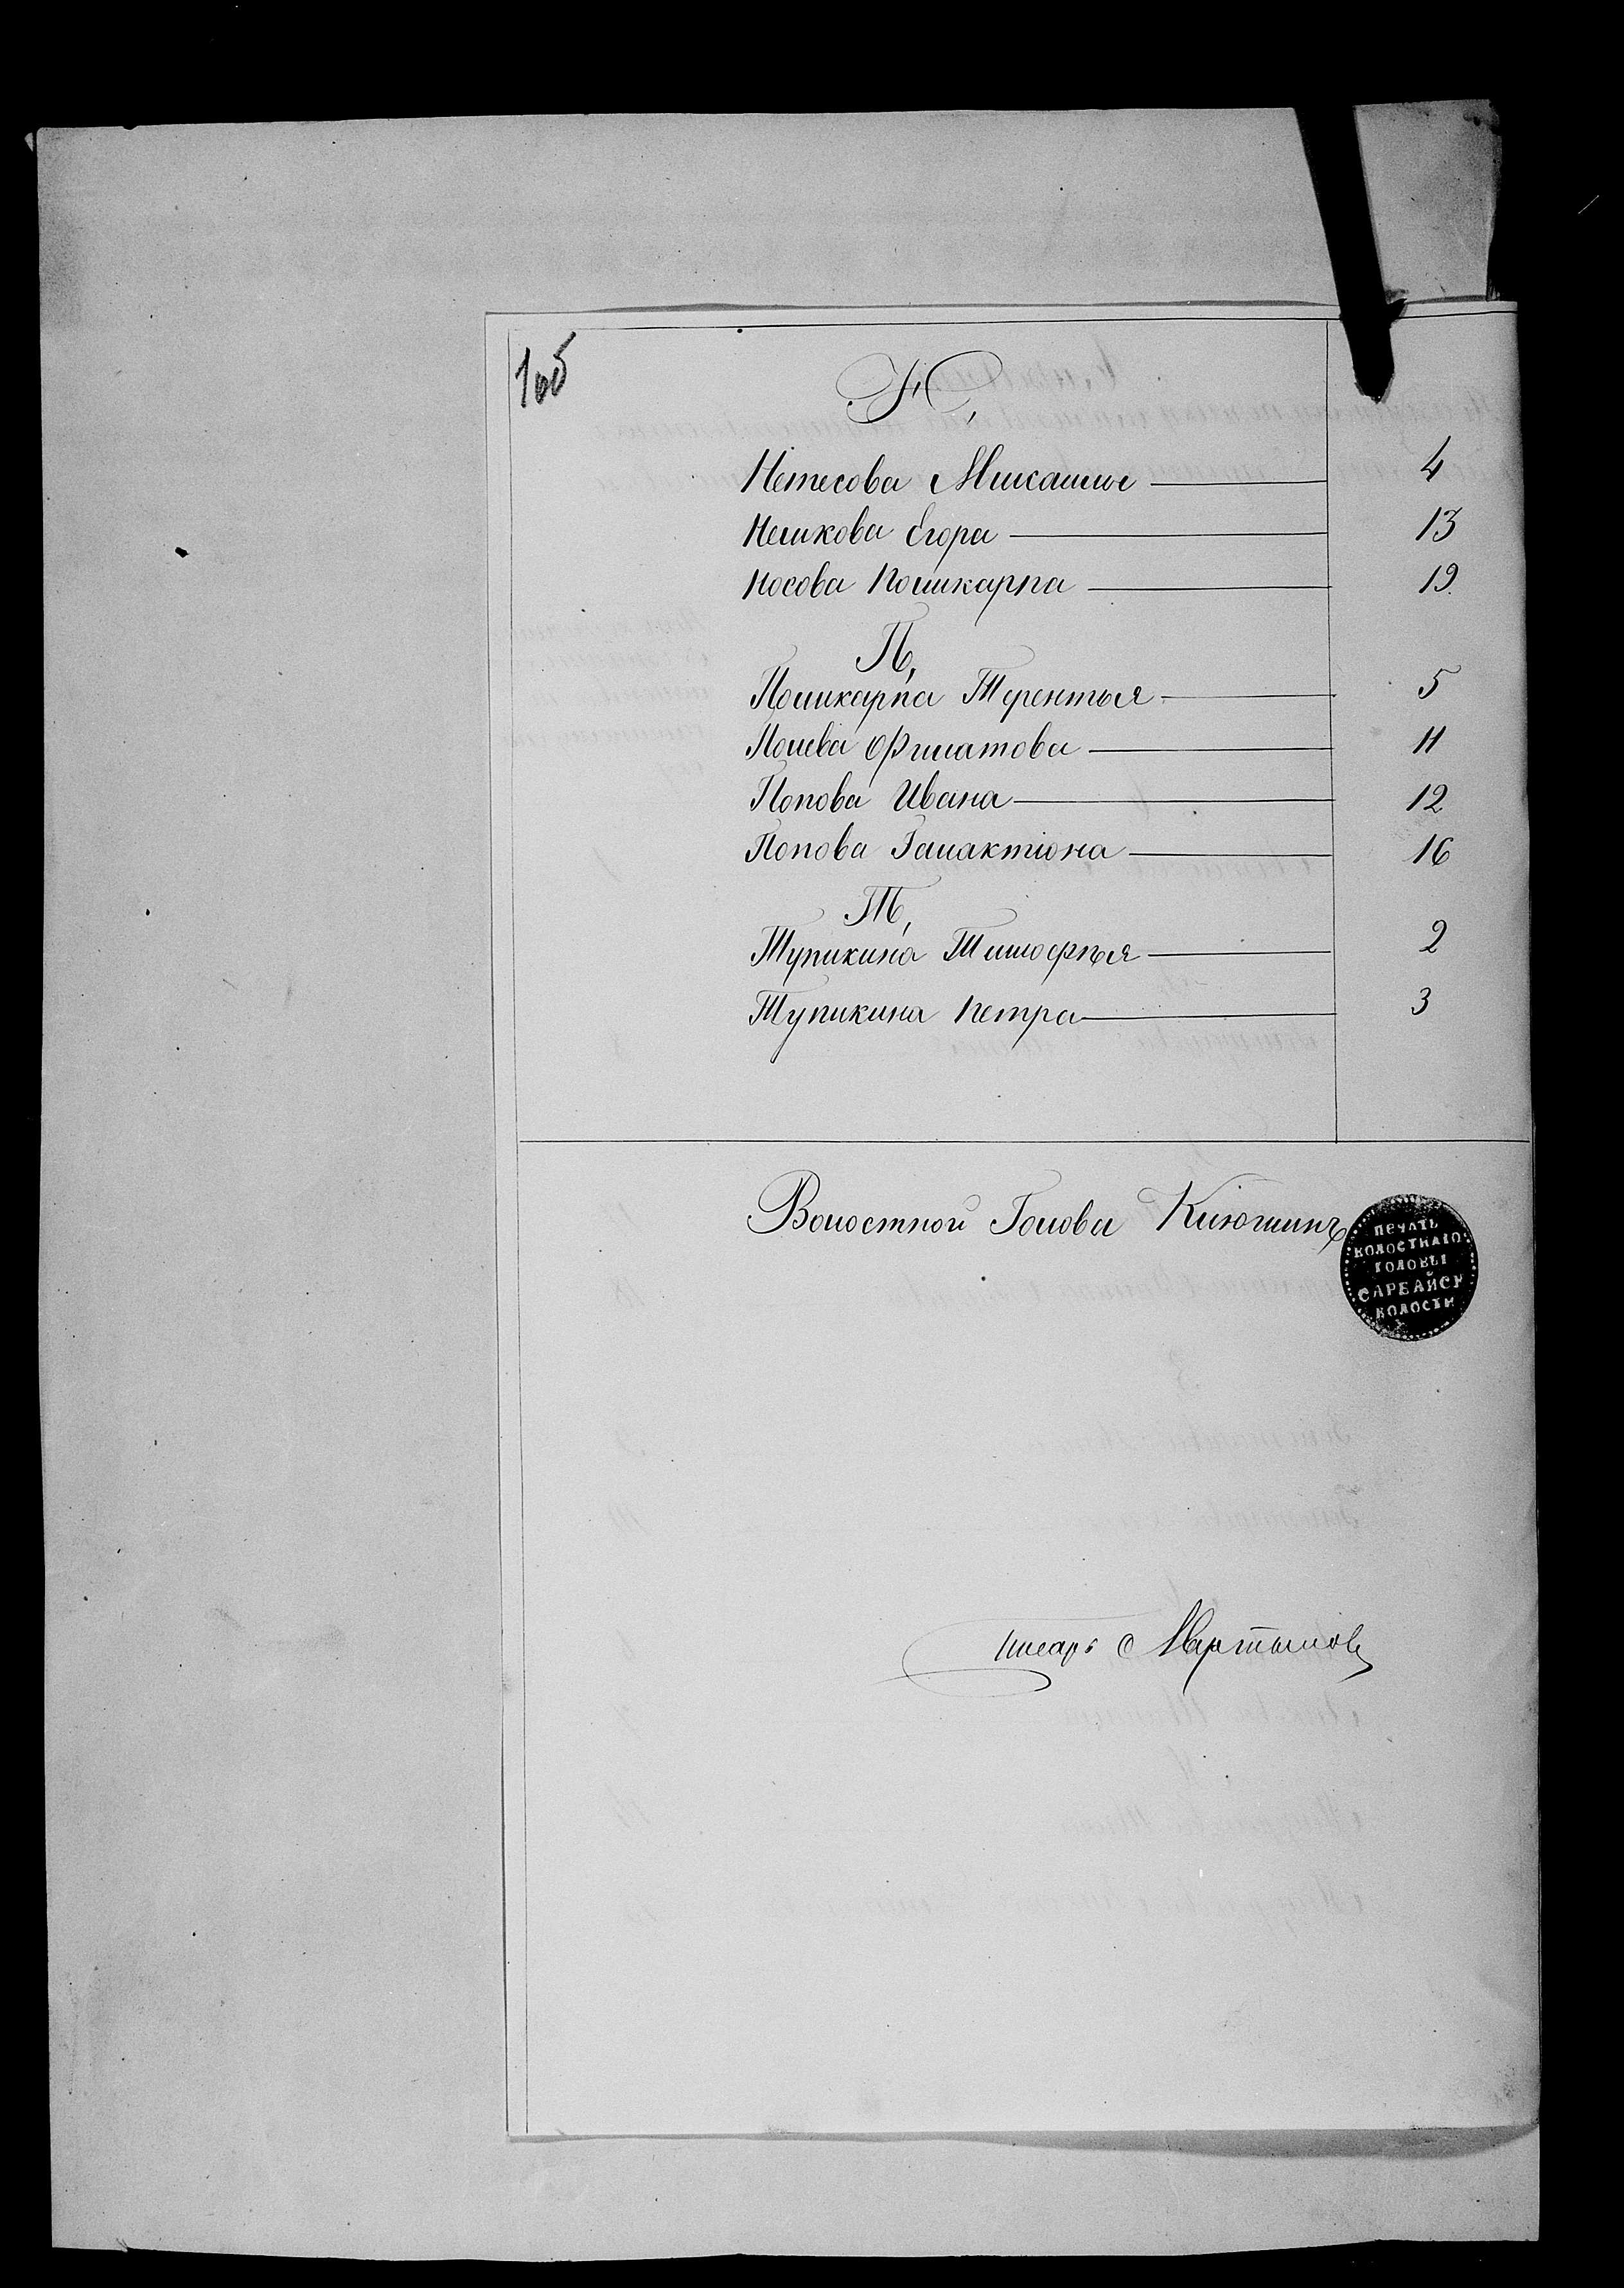 1об
Н,
Нетесова Михаилы 4
Неликова Егора 13
Носова Поликарпа 19.
П,
Поликарпа Терентья 5
Полева Филатова 11
Попова Ивана 12
Попова Галактіона 16
Т,
Тупикина Тимофѣя 2
Тупикина Петра 3
Волостной Голова Клюшинъ
ПЕЧАТЬ
ВОЛОСТНАГО
ГОЛОВЫ
САРБАЙСК
ВОЛОСТИ
писарь Мартыновъ